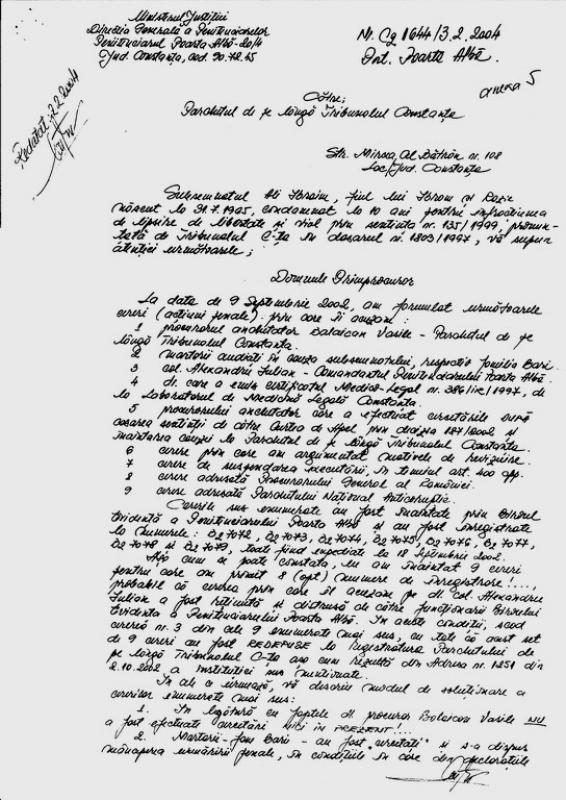 Ministerul Justiției
Direcția Generală a Penitenciarelor
Penitenciarul Poarta Albă-20/4
Jud. Constanța, cod. 90.72.45
Nr. C2 1644/3.2.2004
Pnt. Poarta Albă.
anexa 5
Redactat: 2.2.2004
Către;
Parchetul de pe lângă Tribunalul Constanța
Str. Mircea cel Bătrân nr. 108
Loc/Jud. Constanța
Subsemnatul Ali Ibraim, fiul lui Ibram și
născut la 31.7.1965, condamnat la 10 ani pentru infracțiunea
de lipsire de libertate și viol prin sentința nr. 135/1999, pronun-
țată de Tribunalul C-ța în dosarul nr. 1803/1997, vă supun
atenției următoarele;
Domnule Primprocuror
La data de 9 Septembrie 2002, am formulat următoarele
cereri (acțiuni penale) prin care îi acuzam:
1 procurorul anchetator Balaican Vasile - Parchetul de pe
lângă Tribunalul Constanța.
2 martorii audiați în cauza subsemnatului, respectiv familia Bari.
3 col. Alexandru Iulian - Comandantul Penitenciarului Poarta Albă.
4 dr. care a emis certificatul Medico-Legal nr. 386/ /1997, de
la Laboratorul de Medicină Legală Constanța.
5 procurorului anchetator care a efectuat cercetările după
casarea sentinței de către Curtea de Apel prin decizia 187/2002 și
înaintarea cauzei la Parchetul de pe lângă Tribunalul Constanța.
6 cerere prin care am argumentat motivele de revizuire.
7 cerere de suspendarea executării, în temeiul art. 400 cpp.
8 cerere adresată Procurorului General al României.
9 cerere adresată Parchetului Național Anticorupție.
Cererile sus enumerate au fost înaintate prin Biroul
Evidență a Penitenciarului Poarta Albă și au fost înregistrate
la numerele: C2 7072, C2 7073, C2 7074, C2 7075, C2 7076, C2 7077,
C2 7078 și C2 7079, toate fiind expediate la 18 Septembrie 2002.
Așa cum se poate constata, eu am înaintat 9 cereri
pentru care am primit 8 (opt) numere de înregistrare!...,
probabil că cererea prin care îl acuzam pe dl. col. Alexandru
Iulian a fost reținută și distrusă de către funcționarii Biroului
Evidență a Penitenciarului Poarta Albă. În aceste condiții, scad
cererea nr. 3 din cele 9 enumerate mai sus, cu toate că acest set
de 9 cereri au fost REDEPUSE la Registratura Parchetului de
pe lângă Tribunalul C-ța așa cum rezultă din Adresa nr. 1251 din
2.10.2002 a instituției sus menționate.
În cele ce urmează, vă descriu modul de soluționare a
cererilor enumerate mai sus:
1. În legătură cu faptele dl procuror Balaican Vasile NU
a fost efectuate cercetări nici în PREZENT!...
2. Martorii - fam Bari - au fost "cercetați" și s-a dispus
neînceperea urmăririi penale, în condițiile în care din declarațiile